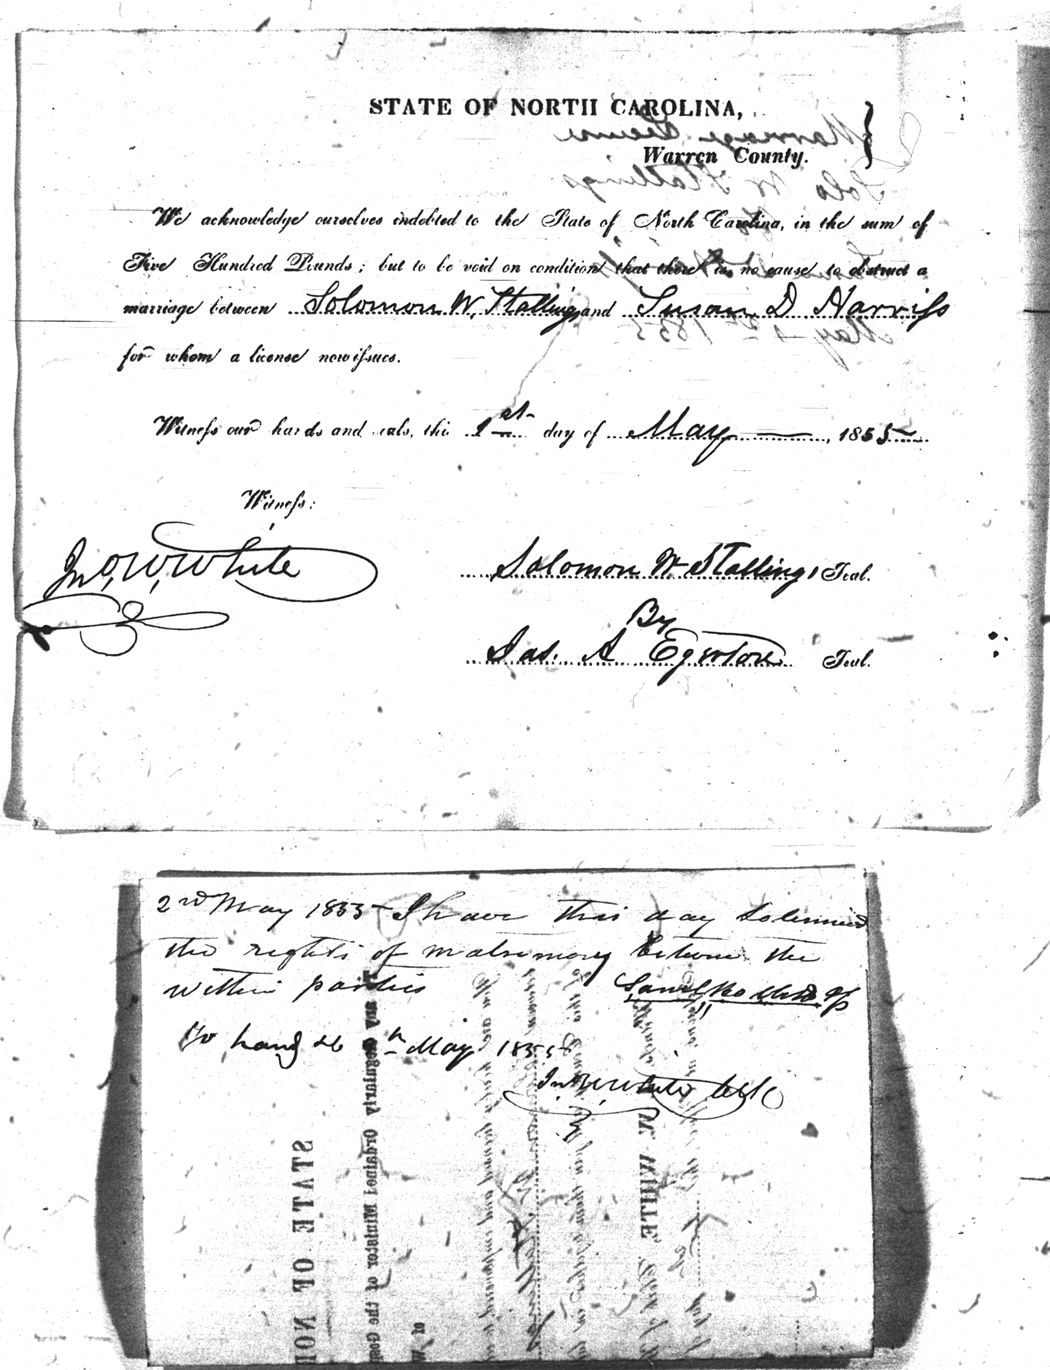 STATE OF NORTH CAROLINA,
Warren County.
We acknowledge ourselves indebted to the State of North Carolina, in the sum of
Five Hundred Pounds; but to be void on condition that there is no cause to obstruct a
marriage between Solomon W. Stallings and Susan D Harriss
for whom a license now issues.
Witness our hands and seals, this 1st day of May 1855
Witness:
Jno. W. White
Solomon W Stallings Seal.
By
Jas. A Egerton Seal.
2nd May 1855 I have this day Solemnised
the rights of matrimony between the
within parties
To hand May 1855
Jno. W. White Clk
STATE OF NOR
any Regularly Ordained Minister of the Gosp
W. WHITE,